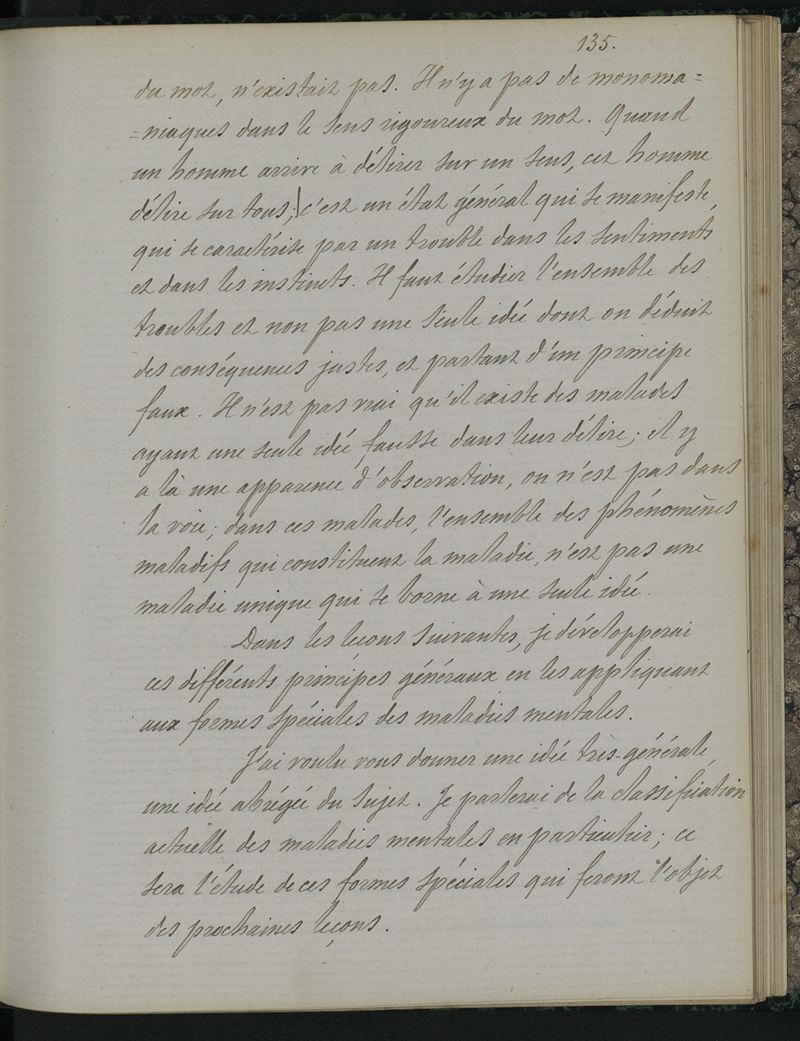 135.
du mot, n'existait pas. Il n'y a pas de monoma=
=niaques dans le sens rigoureux du mot. Quand
un homme arrive à délirer sur un sens, cet homme
délire sur tous; c'est un état général qui se manifeste,
qui se caractérise par un trouble dans les sentiments
et dans les instincts. Il faut étudier l'ensemble des
troubles et non pas une seule idée dont on déduit
des conséquences justes, et partant d'un principe
faux. Il n'est pas vrai qu'il existe des malades
ayant une seule idée fausse dans leur délire; il y
a là une apparence d'observation, on n'est pas dans
la voie; dans ces malades, l'ensemble des phénomènes
maladifs qui constituent la maladie, n'est pas une
maladie unique qui se borne à une seule idée.
Dans les leçons suivantes, je développerai
ces différents principes généraux en les appliquant
aux formes spéciales des maladies mentales.
J'ai voulu vous donner une idée très-générale,
une idée abrégée du sujet. Je parlerai de la classification
actuelle des maladies mentales en particulier; ce
sera l'étude de ces formes spéciales qui feront l'objet
des prochaines leçons.